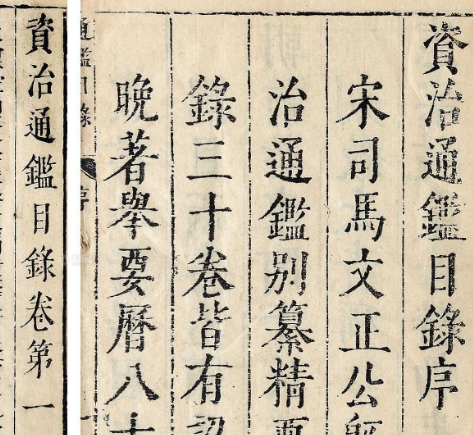 資治通鑑目錄序
宋司馬文正公
治通鑑別纂精要
錄三十卷皆有
晚著舉要曆八十
通鑑目錄 序
資治通鑑目錄卷第一